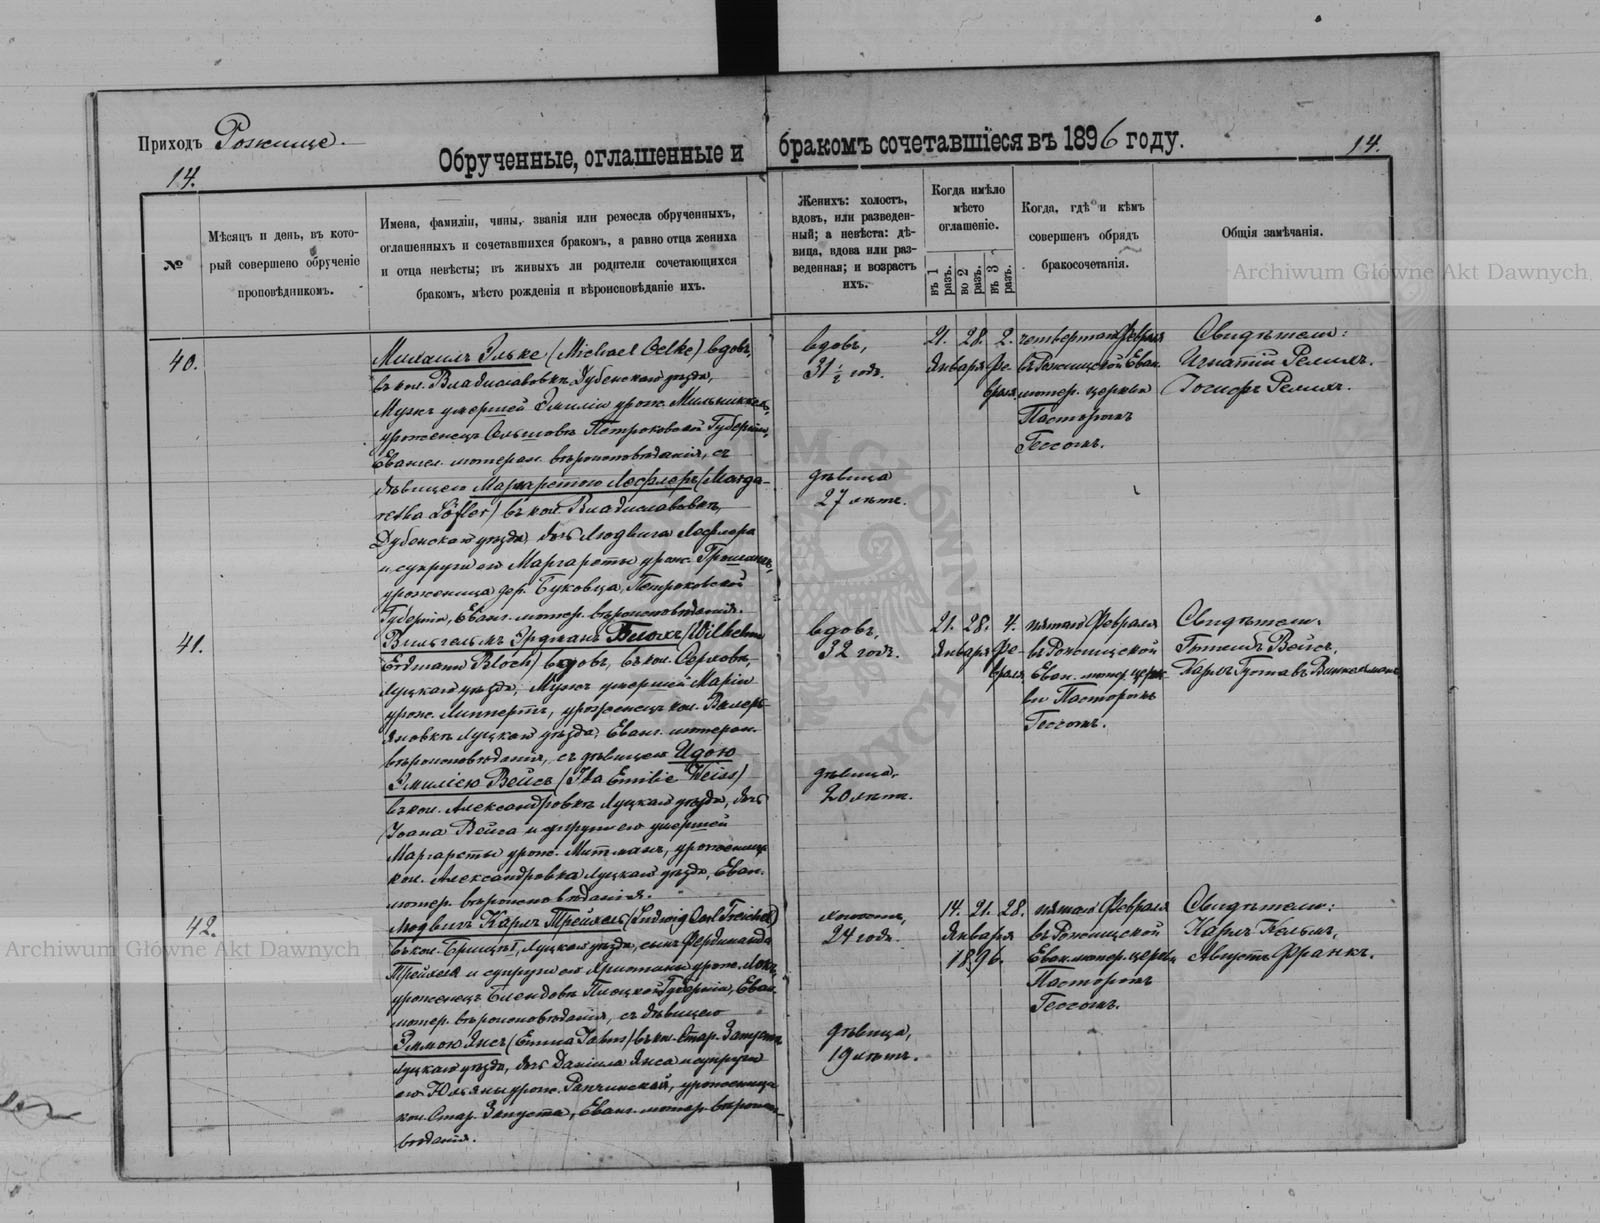 Приходъ Рожище.
14.
Обрученные, оглашенные и бракомъ сочетавшіеся въ 1896 году.
14.
№
Мѣсяцъ и день, въ кото-
рый совершено обрученіе
проповѣдникомъ.
Имена, фамиліи, чины, званія или ремесла обрученныхъ,
оглашенныхъ и сочетавшихся бракомъ, а равно отца жениха
и отца невѣсты; въ живыхъ ли родители сочетающихся
бракомъ, мѣсто рожденія и вѣроисповѣданіе ихъ.
Женихъ: холостъ,
вдовъ, или разведен-
ный; а невѣста: дѣ-
вица, вдова или раз-
веденная; и возрастъ
ихъ.
Когда имѣло
мѣсто
оглашеніе.
въ 1 разъ.
во 2 разъ.
въ 3 разъ.
Когда, гдѣ и кѣмъ
совершенъ обрядъ
бракосочетанія.
Общія замѣчанія.
Archiwum Główne Akt Dawnych
40.
Михаилъ Эльке (Michael Oelke) вдовъ,
въ кол. Владиславовкѣ Дубенскаго уѣзда,
Мужъ умершей Эмиліи урож.
уроженецъ Петроковской Губерніи,
Евангел. лютеран. вѣроисповѣданія, съ
дѣвицею Маргаретою Лефлеръ (Marga-
retha Löfler) въ кол. Владиславовкѣ,
Дубенскаго уѣзда, дочь Людвига Лефлера
и супруги его Маргареты урож.
уроженица дер. Буковца, Петроковской
Губерніи, Еванг. лютер. вѣроисповѣданія.
вдовъ,
31 ½ годъ.
дѣвица
27 лѣтъ.
21. 28. 2.
Января Фе-
враля
четвертаго Февраля
въ Рожищской Еван.
лютер. церкви
Пасторомъ
Гессомъ.
Свидѣтели:
Игнатій Релихъ.
Іосифъ Релихъ.
41.
Вильгельмъ Эрдманъ Блохъ (Wilhelm
Erdmann Bloch) вдовъ, въ кол.
Луцкаго уѣзда, Мужъ умершей Маріи
урож. Липпертъ, уроженецъ кол. Валерь-
яновкѣ Луцкаго уѣзда, Еванг. лютеран.
вѣроисповѣданія, съ дѣвицею Идою
Эмиліею Вейсъ (Ida Emilie Weiss)
въ кол. Александровкѣ Луцкаго уѣзда, дочь
Іоана Вейса и супруги его умершей
Маргареты урож. Митманъ, уроженица
кол. Александровка Луцкаго уѣзда, Еван.
лютер. вѣроисповѣданія.
вдовъ,
32 годъ.
дѣвица,
20 лѣтъ.
21. 28. 4.
Января Фе-
враля
пятаго Февраля
въ Рожищской
Еван. лютер. церк-
ви Пасторомъ
Гессомъ.
Свидѣтели:
Готлибъ Вейсъ,
Карлъ Густавъ Винкельманъ
42.
Людвигъ Карлъ Трейхель (Ludwig Carl Treichel)
въ кол. Луцкаго уѣзда, сынъ Фердинанда
Трейхеля и супруги его Христины урож.
уроженецъ Плоцкой Губерніи, Еван.
лютер. вѣроисповѣданія, съ дѣвицею
Эммою Янсъ (Emma Jahns) въ кол. Стар. Запустъ
Луцкаго уѣзда, дочь Даніила Янса и супруги
его Юльяны урож. уроженица
кол. Стар. Запуста, Еванг. лютер. вѣроиспо-
вѣданія.
холостъ,
24 годъ.
дѣвица,
19 лѣтъ.
14. 21. 28.
Января
1896.
пятаго Февраля
въ Рожищской
Еван. лютер. церкви
Пасторомъ
Гессомъ.
Свидѣтели:
Карлъ
Августъ Франкъ.
Archiwum Główne Akt Dawnych